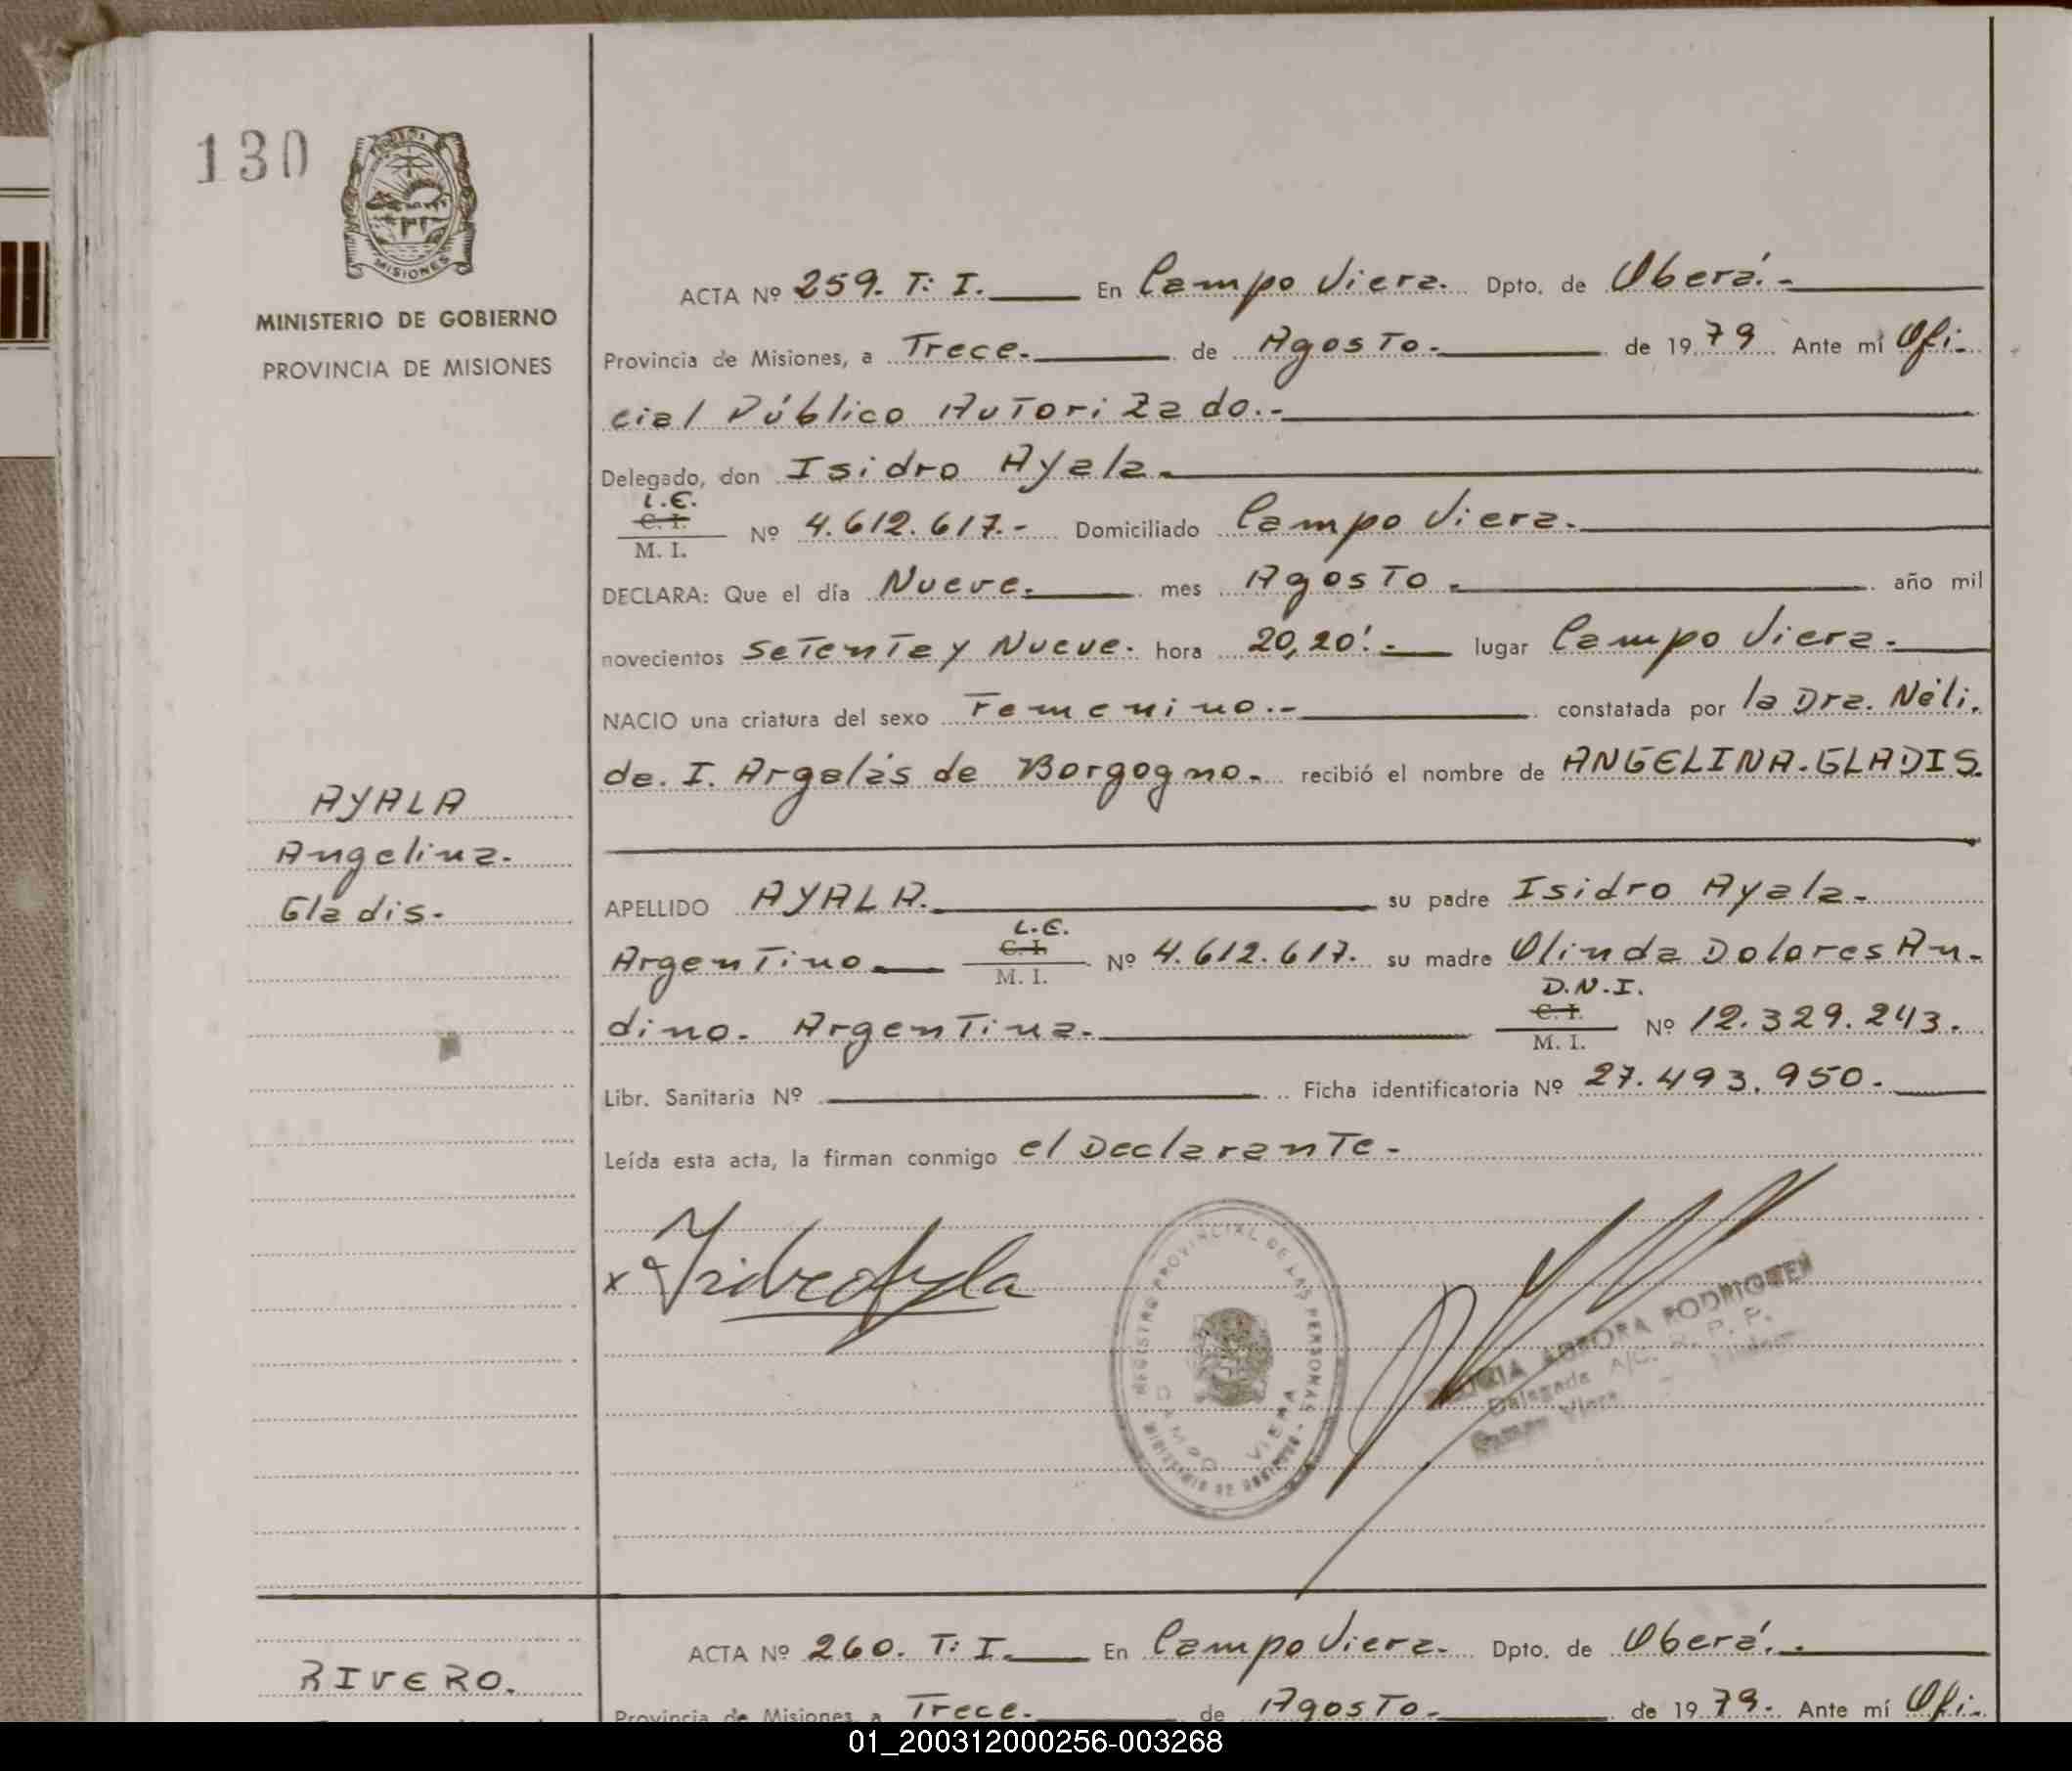 130
MISIONES
MINISTERIO DE GOBIERNO
PROVINCIA DE MISIONES
ACTA Nº 259. T: I. En Campo Viera. Dpto. de Oberá.-
Provincia de Misiones, a Trece. de Agosto. de 1979 Ante mí Ofi-
cial Público Autorizado.-
Delegado, don Isidro Ayala.
L.E.
C. I.
M. I.
Nº 4.612.617.- Domiciliado Campo Viera.
DECLARA: Que el día Nueve. mes Agosto. año mil
novecientos setenta y Nueve. hora 20,20'.- lugar Campo Viera.
NACIO una criatura del sexo Femenino.- constatada por la Dra. Néli.
da. I. Argalás de Borgogno. recibió el nombre de ANGELINA. GLADIS.
AYALA
Angelina.
Gladis.
APELLIDO AYALA. su padre Isidro Ayala.
L.E.
Argentino C. I. Nº 4.612.617. su madre Olinda Dolores An-
M. I.
D.N.I.
dino. Argentina. C. I. Nº 12.329.243.
M. I.
Libr. Sanitaria Nº Ficha identificatoria Nº 27.493.950.
Leída esta acta, la firman conmigo el Declarante.
x Isidro Ayala
REGISTRO PROVINCIAL DE LAS PERSONAS
CAMPO VIERA
MINISTERIO DE GOBIERNO
AURORA RODRIGUEZ
Delegada A/C. R. P. P.
Campo Viera
ACTA Nº 260. T: I. En Campo Viera. Dpto. de Oberá.
RIVERO.
Provincia de Misiones, a Trece. de Agosto. de 1979. Ante mí Ofi-
01_200312000256-003268